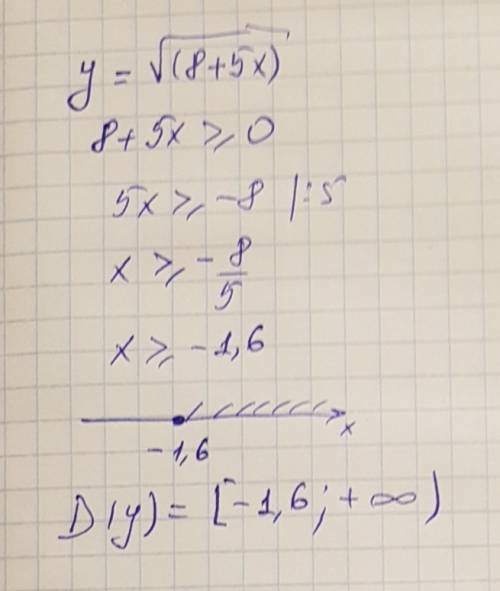 y = √(8+5x)
8+5x ⩾ 0
5x ⩾ -8 |:5
x ⩾ -8/5
x ⩾ -1,6
x
-1,6
D(y) = [-1,6; +∞)